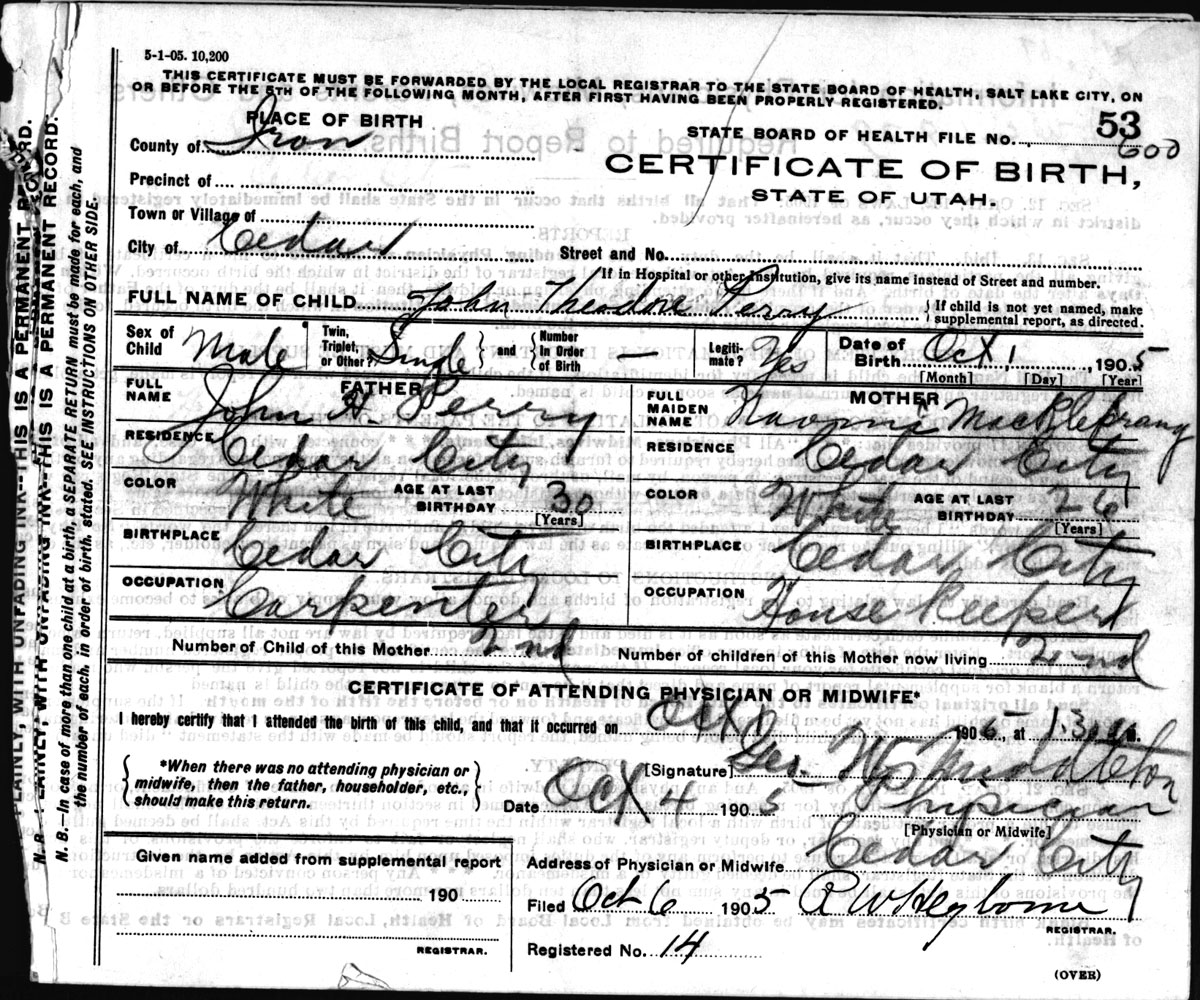 5-1-05. 10,200
THIS CERTIFICATE MUST BE FORWARDED BY THE LOCAL REGISTRAR TO THE STATE BOARD OF HEALTH, SALT LAKE CITY, ON
OR BEFORE THE 5TH OF THE FOLLOWING MONTH, AFTER FIRST HAVING BEEN PROPERLY REGISTERED.
PLACE OF BIRTH
County of Iron
Precinct of
Town or Village of
City of Cedar
STATE BOARD OF HEALTH FILE NO. 53
600
CERTIFICATE OF BIRTH,
STATE OF UTAH.
Street and No.
If in Hospital or other Institution, give its name instead of Street and number.
FULL NAME OF CHILD John Theodore Perry { If child is not yet named, make supplemental report, as directed.
Sex of Child Male Twin, Triplet, or Other? Single } and { Number In Order of Birth — Legiti-mate? Yes Date of Birth Oct 1, 1905
[Month] [Day] [Year]
FATHER
FULL NAME John H. Perry
RESIDENCE Cedar City
COLOR White AGE AT LAST BIRTHDAY 30
[Years]
BIRTHPLACE Cedar City
OCCUPATION Carpenter
MOTHER
FULL MAIDEN NAME Naomi MacKleprang
RESIDENCE Cedar City
COLOR White AGE AT LAST BIRTHDAY 26
[Years]
BIRTHPLACE Cedar City
OCCUPATION House Keeper
Number of Child of this Mother 2nd Number of children of this Mother now living 2nd
CERTIFICATE OF ATTENDING PHYSICIAN OR MIDWIFE*
I hereby certify that I attended the birth of this child, and that it occurred on Oct 1 1905, at M.
{ *When there was no attending physician or midwife, then the father, householder, etc., should make this return. }
[Signature] Geo. W. Middleton
Date Oct 4 1905 Physician
[Physician or Midwife]
Given name added from supplemental report
190
REGISTRAR.
Address of Physician or Midwife Cedar City
Filed Oct 6 1905
REGISTRAR.
Registered No. 14
(OVER)
PLAINLY, WITH UNFADING INK--THIS IS A PERMANENT RECORD.
N. B.--In case of more than one child at a birth, a SEPARATE RETURN must be made for each, and
the number of each, in order of birth, stated. SEE INSTRUCTIONS ON OTHER SIDE.